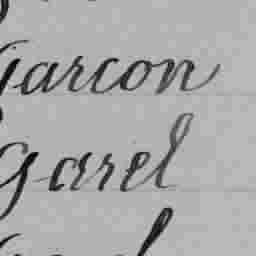 Garcon
Garel